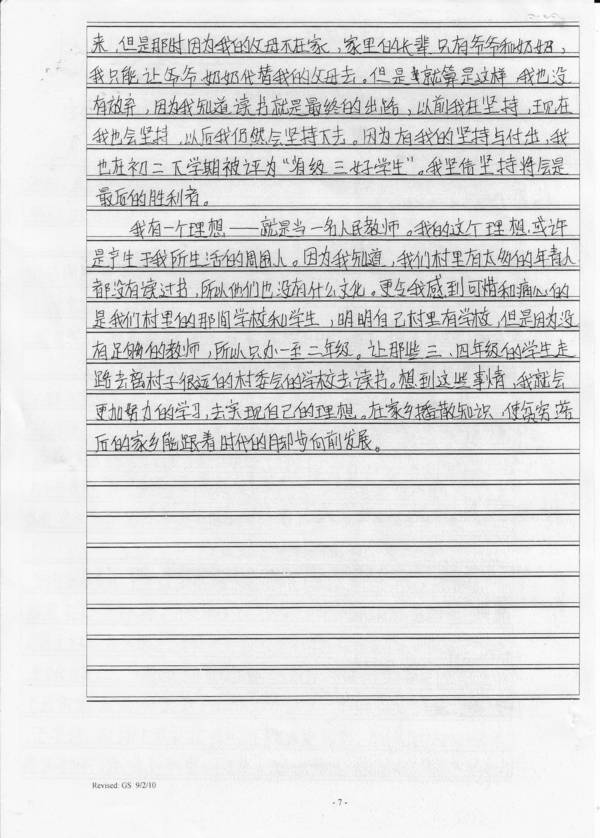 来，但是那时因为我的父母不在家，家里的长辈只有爷爷和奶奶，
我只能让爷爷奶奶代替我的父母去。但是就算是这样，我也没
有放弃，因为我知道读书就是最终的出路，以前我在坚持，现在
我也会坚持，以后我仍然会坚持下去。因为有我的坚持与付出，我
也在初二下学期被评为“省级三好学生”。我坚信坚持将会是
最后的胜利者。
我有一个理想——就是当一名人民教师。我的这个理想，或许
是产生于我所生活的周围人。因为我知道，我们村里有太多的年青人
都没有读过书，所以他们也没有什么文化。更令我感到可惜和痛心的
是我们村里的那间学校和学生，明明自己村里有学校，但是因为没
有足够的教师，所以只办一至二年级。让那些三、四年级的学生走
路去离村子很远的村委会的学校去读书。想到这些事情，我就会
更加努力的学习，去实现自己的理想。在家乡播散知识，使贫穷落
后的家乡能跟着时代的脚步向前发展。
Revised: GS 9/2/10
- 7 -